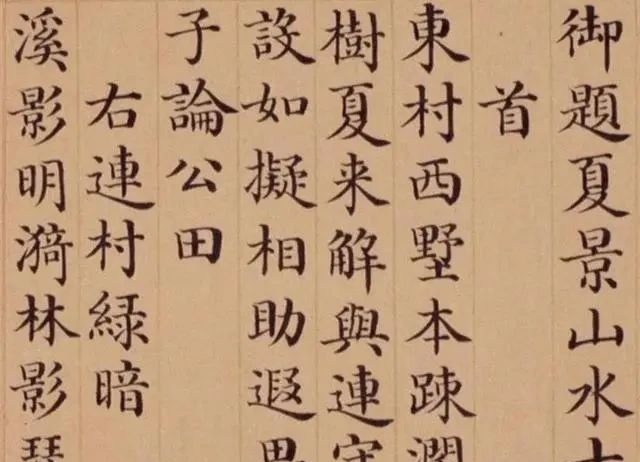 御題夏景山水
首
東村西墅本踈
樹夏来解與連
設如擬相助遐
子論公田
右連村緑暗
溪影明漪林影